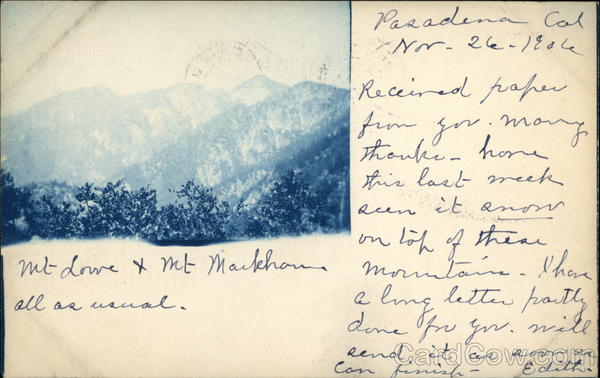 Pasadena Cal
Nov- 26-1906
Received paper
from you. Many
thanks - have
this last week
seen it snow
on top of these
mountains - I have
a long letter partly
done for you. will
send it as soon as
can finish - Edith-
Mt Lowe & Mt Markham
all as usual.
CardCow.com